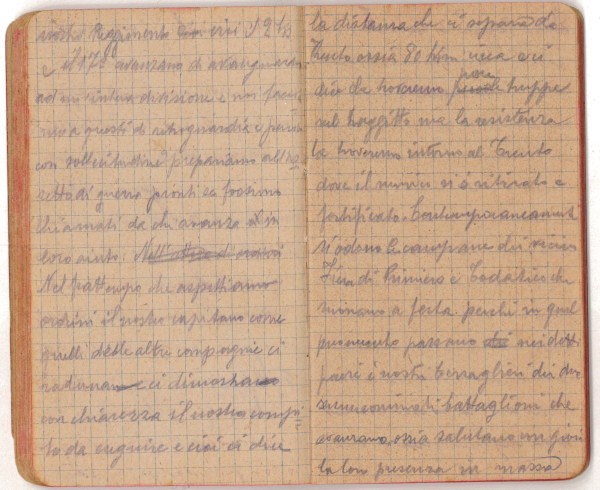 nostro Reggimento
e il 17° avanzano di avanguardia
ad un'intera divisione e noi facci
mo a questi di retroguardia e perciò
con sollecitudine prepariamo all'as
setto di guerra pronti se fossimo
chiamati da chi avanza in
loro aiuto.
Nel frattempo che aspettiamo
ordini il nostro capitano come
quelli delle altre compagnie ci
radunano e ci dimostrano
con chiarezza il nostro compi
to da eseguire e cioè ci dice
la distanza che ci separa da
Trento ossia 80 Klm circa e ci
dice che troveremo poche truppe
sul tragitto ma la resistenza
la troveremo intorno al Trento
dove il nemico si è ritirato e
fortificato. Contemporaneament
si odono le campane dei vicini
Fiera di Primiero e che
suonano a festa perché in quel
momento passano nei detti
paesi i nostri bersaglieri dei due
summenominati battaglioni che
avanzano, ossia salutano con gioia
la loro presenza in massa